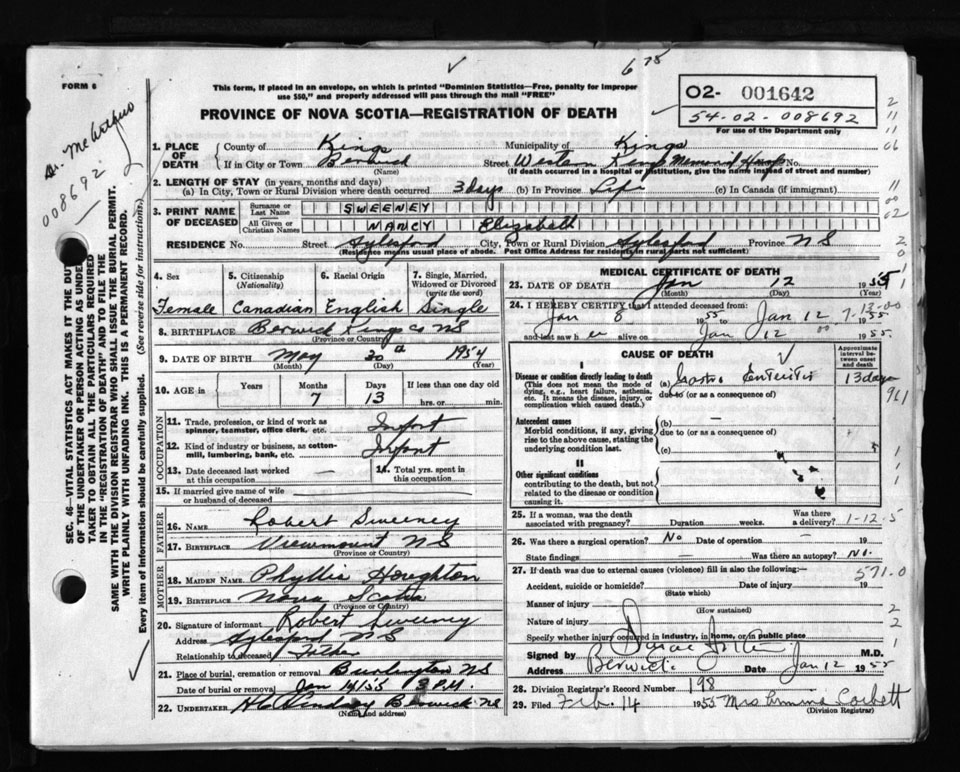 6 75
FORM 6
This form, if placed in an envelope, on which is printed "Dominion Statistics—Free, penalty for improper
use $50," and properly addressed will pass through the mail "FREE"
PROVINCE OF NOVA SCOTIA—REGISTRATION OF DEATH
O2- 001642
54-02-008692
For use of the Department only
008692
SEC. 46—VITAL STATISTICS ACT MAKES IT THE DUTY
OF THE UNDERTAKER OR PERSON ACTING AS UNDER-
TAKER TO OBTAIN ALL THE PARTICULARS REQUIRED
IN THE "REGISTRATION OF DEATH" AND TO FILE THE
SAME WITH THE DIVISION REGISTRAR WHO SHALL ISSUE THE BURIAL PERMIT.
WRITE PLAINLY WITH UNFADING INK. THIS IS A PERMANENT RECORD.
Every item of information should be carefully supplied. (See reverse side for instructions.)
1. PLACE OF DEATH County of Kings Municipality of Kings
If in City or Town Berwick Street Western Kings Memorial Hosp No.
(Name) (If death occurred in a hospital or institution, give the name instead of street and number)
2. LENGTH OF STAY (in years, months and days)
(a) In City, Town or Rural Division where death occurred 3 days (b) In Province Life (c) In Canada (if immigrant)
3. PRINT NAME OF DECEASED
Surname or Last Name SWEENEY
All Given or Christian Names NANCY Elizabeth
RESIDENCE No. Street Aylesford City, Town or Rural Division Aylesford Province NS
(Residence means usual place of abode. Post Office Address for residents in rural parts not sufficient)
4. Sex 5. Citizenship (Nationality) 6. Racial Origin 7. Single, Married, Widowed or Divorced (write the word)
Female Canadian English Single
8. BIRTHPLACE Berwick Kings Co NS
(Province or Country)
9. DATE OF BIRTH May 30th 1954
(Month) (Day) (Year)
10. AGE in Years Months Days If less than one day old
7 13 hrs. or min.
OCCUPATION
11. Trade, profession, or kind of work as spinner, teamster, office clerk, etc. Infant
12. Kind of industry or business, as cotton-mill, lumbering, bank, etc. Infant
13. Date deceased last worked at this occupation — 14. Total yrs. spent in this occupation
15. If married give name of wife or husband of deceased
FATHER
16. NAME Robert Sweeney
17. BIRTHPLACE Viewmount NS
(Province or Country)
MOTHER
18. MAIDEN NAME Phyllis Houghton
19. BIRTHPLACE Nova Scotia
(Province or Country)
20. Signature of informant Robert Sweeney
Address Aylesford NS
Relationship to deceased Father
21. Place of burial, cremation or removal Burlington NS
Date of burial or removal Jan 14/55 3 P.M.
22. UNDERTAKER H C Lindsay Berwick NS
(Name and address)
MEDICAL CERTIFICATE OF DEATH
23. DATE OF DEATH Jan 12 1955
(Month) (Day) (Year)
24. I HEREBY CERTIFY that I attended deceased from:
Jan 8 1955 Jan 12 1955
and last saw her alive on Jan 12 1955.
CAUSE OF DEATH
Approximate interval between onset and death
I
Disease or condition directly leading to death
(This does not mean the mode of dying, e.g., heart failure, asthenia, etc. It means the disease, injury, or complication which caused death.)
(a) Gastro Enteritis 13 days
due to (or as a consequence of)
Antecedent causes
Morbid conditions, if any, giving rise to the above cause, stating the underlying condition last.
(b) —
due to (or as a consequence of)
(c)
II
Other significant conditions
contributing to the death, but not related to the disease or condition causing it
25. If a woman, was the death associated with pregnancy? Duration weeks. Was there a delivery? 1-12-5
26. Was there a surgical operation? No Date of operation — 19
State findings — Was there an autopsy? No.
27. If death was due to external causes (violence) fill in also the following:— 571.0
Accident, suicide or homicide? Date of injury 19
(State which)
Manner of injury
(How sustained)
Nature of injury
Specify whether injury occurred in industry, in home, or in public place
Signed by M.D.
Address Berwick Date Jan 12 1955
28. Division Registrar's Record Number 198
29. Filed Feb. 14 1955 Mrs Corbett
(Division Registrar)